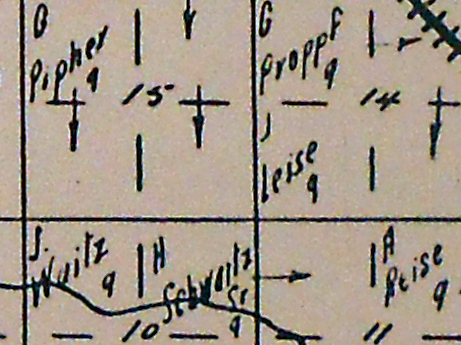 O
Pipher
9
15
G
Proppf
9
14
J
Leise
9
J.
Waitz
9
10
H
Schwaitz
Sr
9
A
Reise
9
11